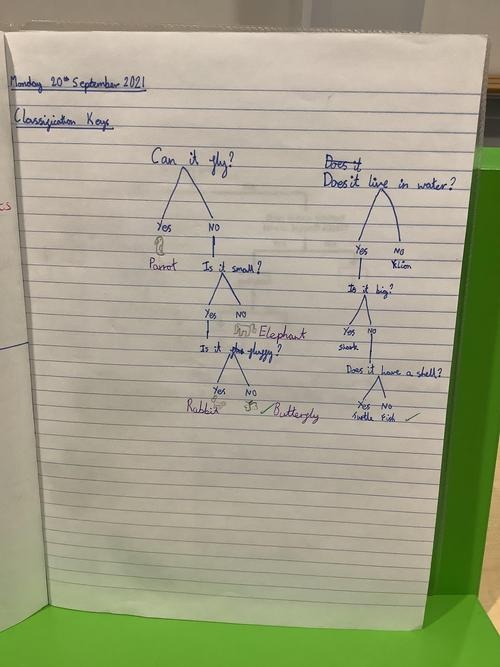 Monday 20th September 2021
Classification Keys
Can it fly?
Yes
NO
Parrot
Is it small?
Yes
NO
Elephant
Is it fluffy?
Yes
NO
Rabbit
Butterfly
Does it
Does it live in water?
Yes
NO
Lion
Is it big?
Yes
NO
Shark
Does it have a shell?
Yes
NO
Turtle
Fish